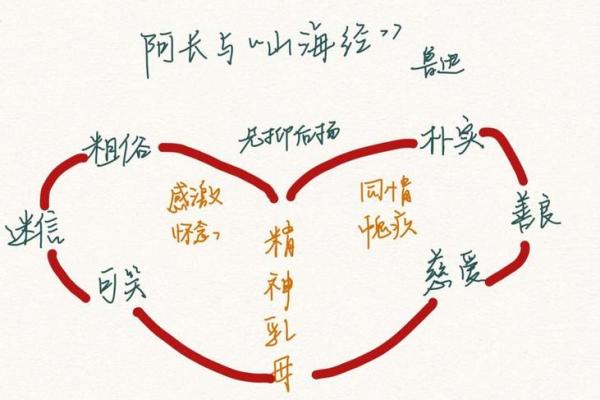 阿长与“山海经”
鲁迅
先抑后扬
粗俗
朴实
感激
怀念
同情
愧疚
迷信
善良
可笑
慈爱
精神乳母